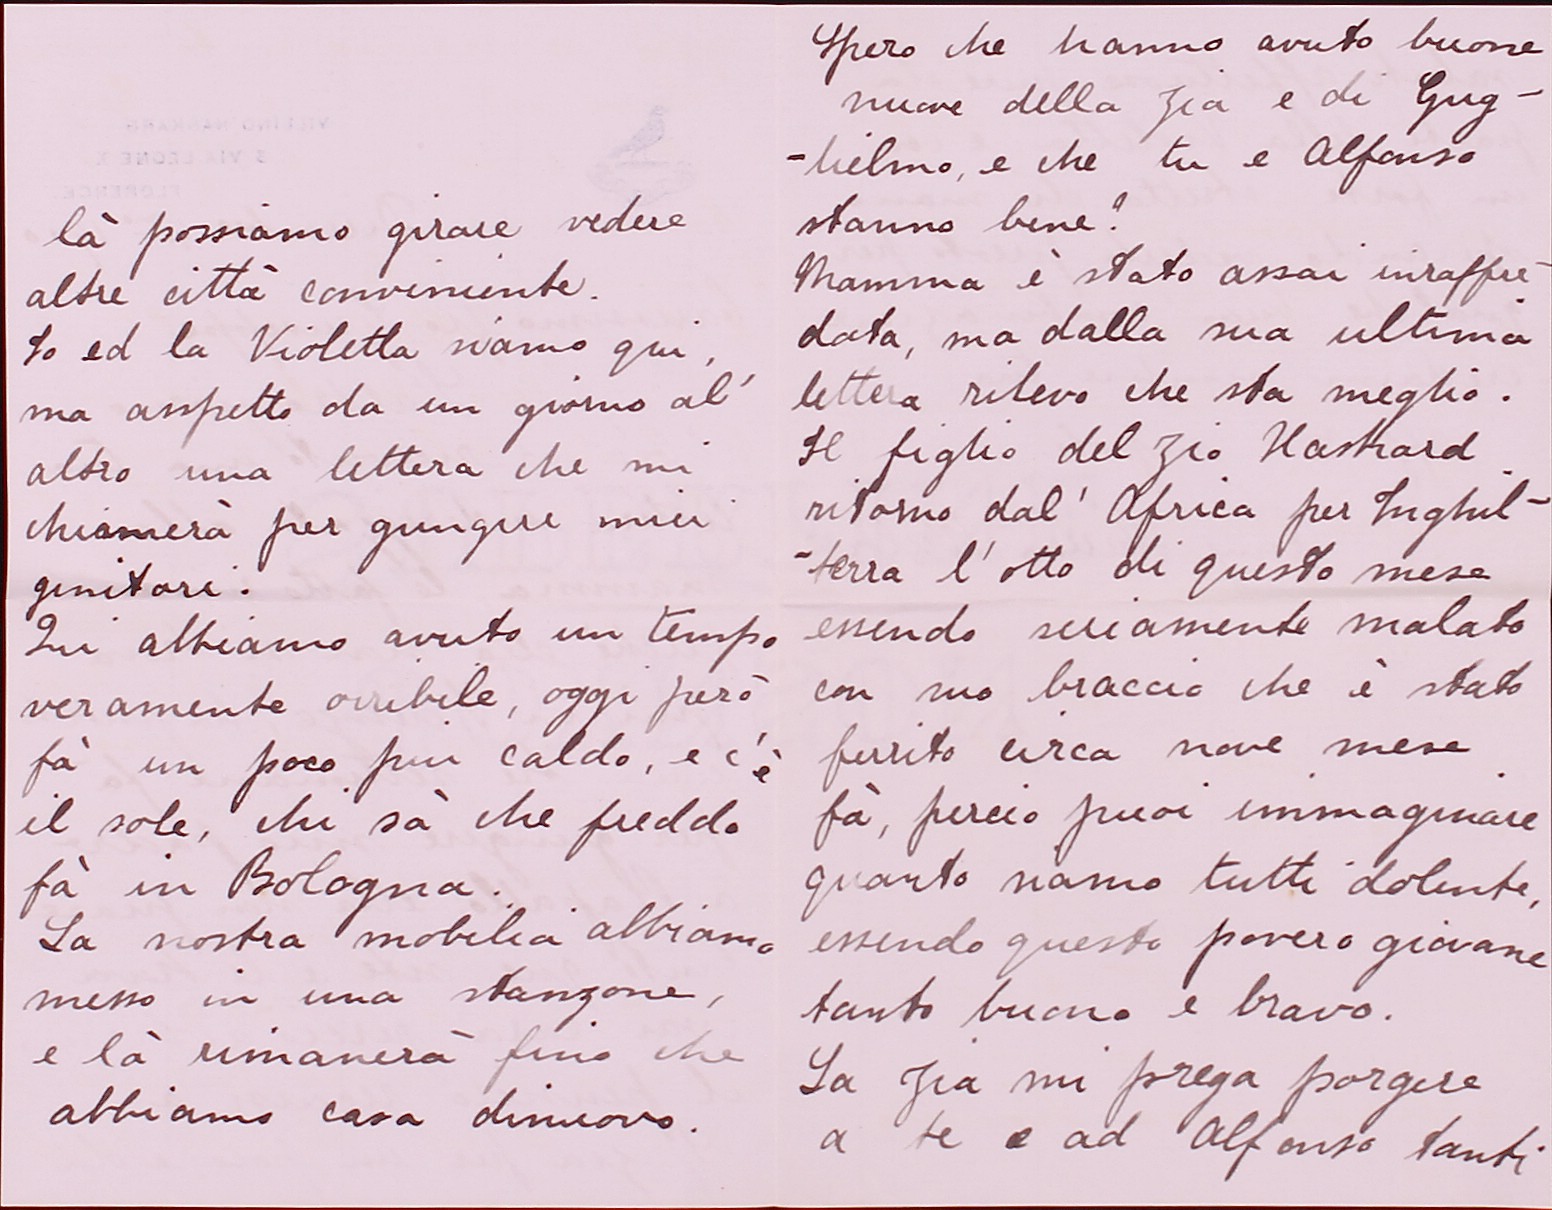 là possiamo girare vedere
altre città conviniente.
Io ed la Violetta siamo qui,
ma aspetto da un giorno al'
altro una lettera che mi
chiamerà per giungere miei
genitori.
Qui abbiamo avuto un tempo
veramente orribile, oggi però
fà un poco piu caldo, e c'è
il sole, chi sà che freddo
fà in Bologna.
La nostra mobilia abbiamo
messo in una stanzone,
e là rimanerà fino che
abbiamo casa dinuovo.
Spero che hanno avuto buone
nuove della Zia e di Gug-
-lielmo, e che tu e Alfonso
stanno bene?
Mamma è stato assai inraffre-
data, ma dalla sua ultima
lettera rilevo che sta meglio.
Il figlio del Zio Haskard
ritorno dal' Africa per Inghil-
-terra l'otto di questo mese
essendo seriamente malato
con suo braccio che è stato
ferrito circa nove mese
fà, percio puoi immaginare
quanto siamo tutti dolente,
essendo questo povero giovane
tanto buono e bravo.
La Zia mi prega porgere
a te e ad Alfonso tanti